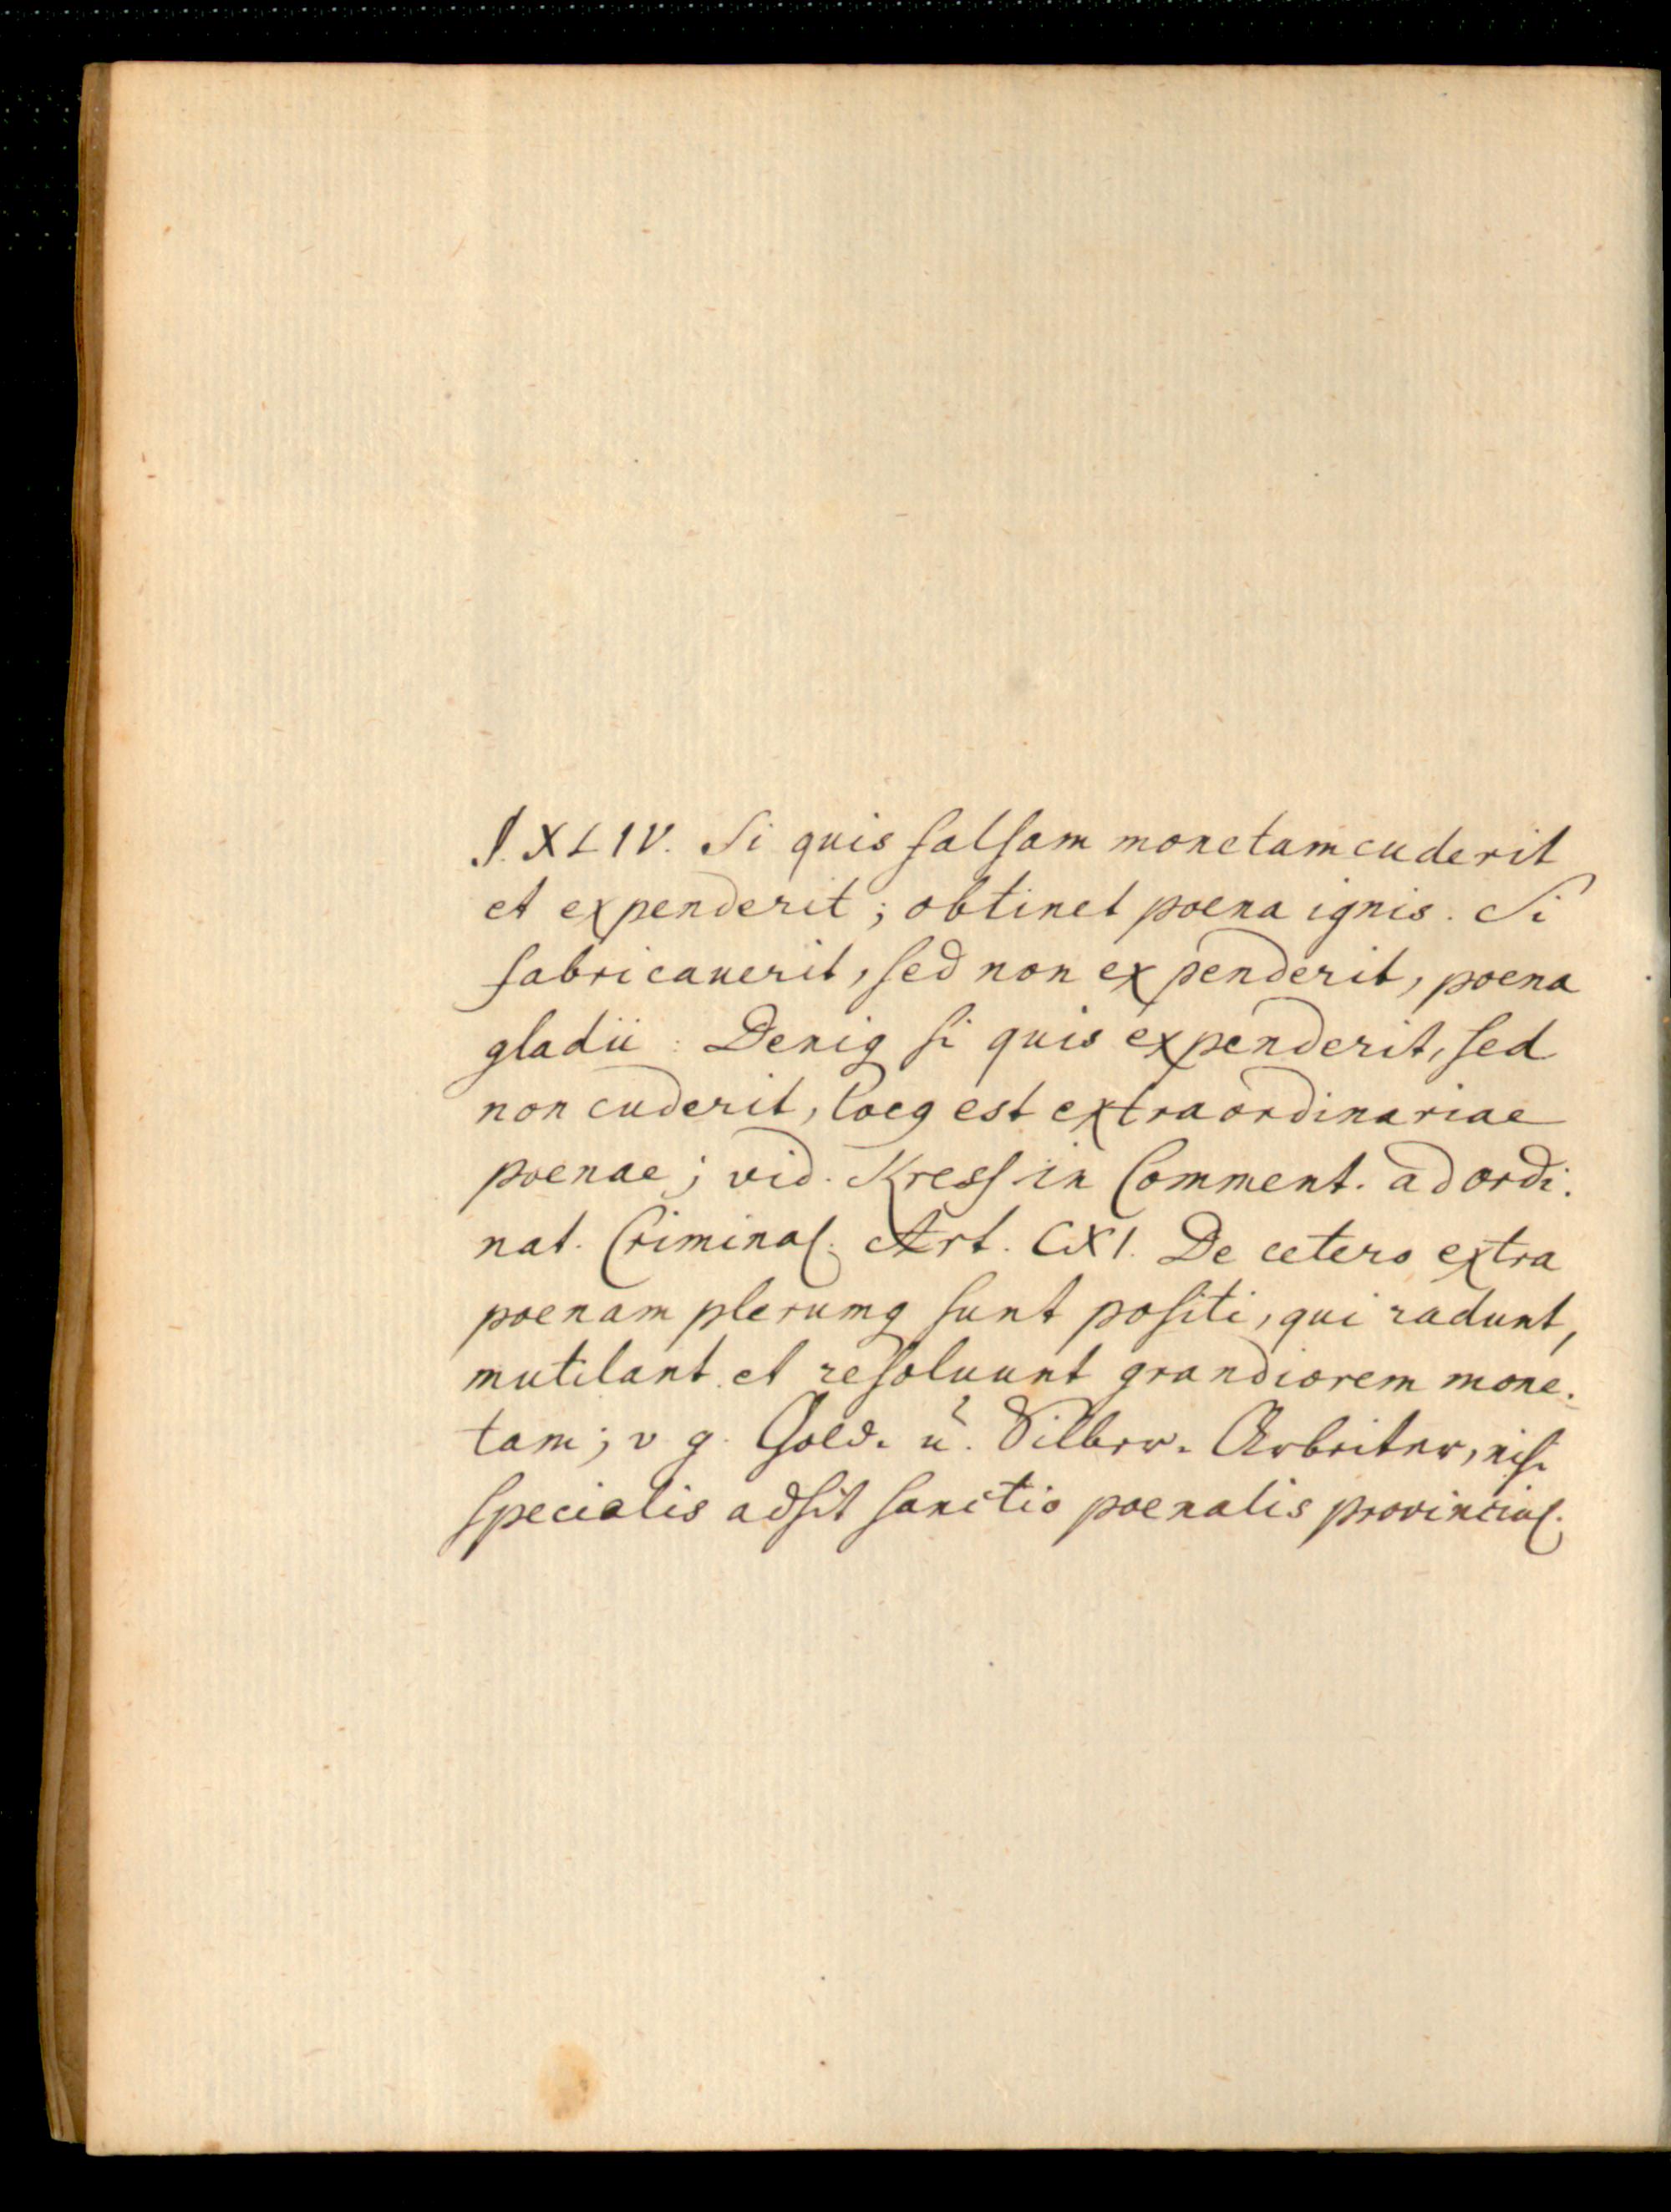 §. XLIV. Si quis falsam monetam cuderit
et expenderit; obtinet poena ignis. Si
fabricauerit, sed non expenderit, poena
gladii: Deniq si quis expenderit, sed
non cuderit, locq est extraordinariae
poenae; vid. Kress in Comment. ad ordi-
nat. Criminal. Art. CXI. De cetero extra
poenam plerumq sunt positi, qui radunt,
mutilant et resoluunt grandiorem mone-
tam; v. g. Gold- u. Silber-Arbeiter, nisi
specialis adsit sanctio poenalis provincial.